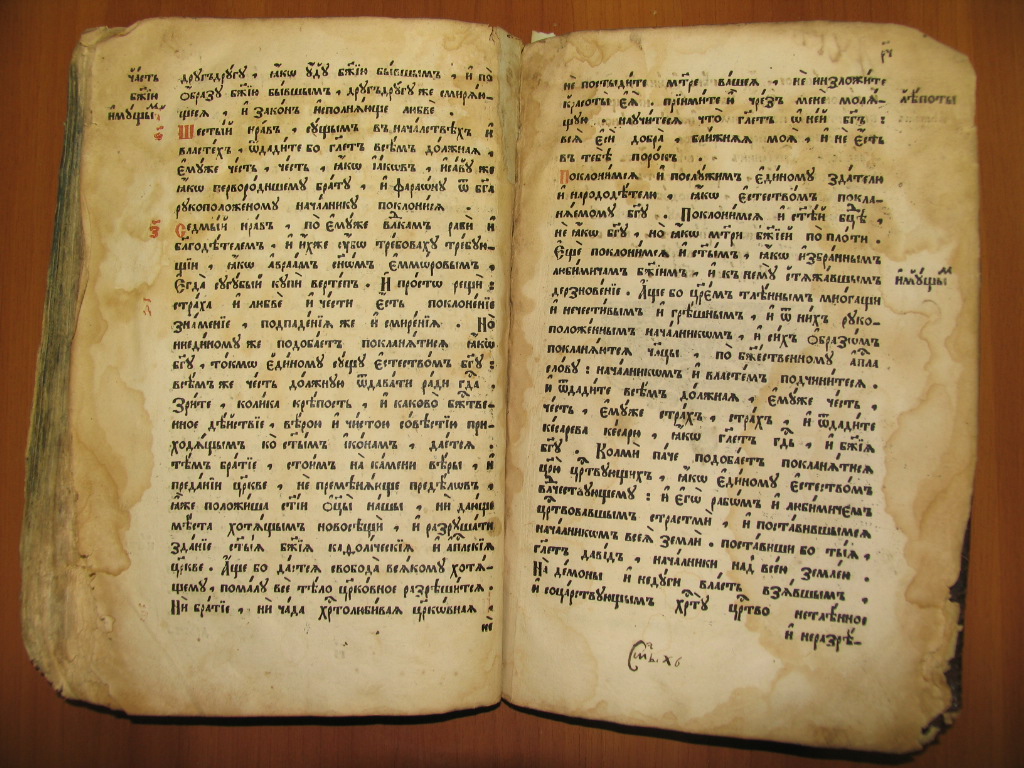 часть
бж҃їю
и҆мꙋщы
дрꙋгъдрꙋгꙋ , ꙗ҆́кѡ ᲂу҆́дꙋ бж҃їю бы́вшымъ , и҆ по
ѻ҆́бразꙋ бж҃їю бы́вшымъ , дрꙋгъдрꙋгꙋ же смирѧ́ю-
щесѧ , и҆ зако́нъ и҆сполнѧ́юще любвѐ .
Шесты́й нра́въ , сꙋ́щымъ въ нача́лствѣхъ и҆
власте́хъ , ѿдади́те бо гл҃етъ всѣ́мъ до́лжнаѧ ,
є҆мꙋ́же че́сть , че́сть , ꙗ҆́кѡ і҆а́кѡвъ , и҆са́ѵꙋ же
ꙗ҆́кѡ перворо́дншемꙋ бра́тꙋ , и҆ фараѡ́нꙋ ѿ бг҃а
рꙋкоположе́номꙋ нача́лникꙋ поклони́сѧ .
Седмы́й нра́въ , по є҆мꙋ́же влⷣкамъ рабѝ и҆
благодѣ́телемъ , и҆ и҆́хже сꙋ́бѡ тре́бовахꙋ тре́бꙋю-
щїи , ꙗ҆́кѡ а҆враа́мъ сн҃ѡ́мъ є҆ммѡ́ровымъ ,
є҆гда̀ сꙋгꙋ́бый кꙋпѝ верте́пъ . И҆ про́стѡ рещѝ :
стра́ха и҆ любвѐ и҆ че́сти є҆́сть поклоне́нїе
зна́менїе , подпаде́нїѧ же и҆ смире́нїѧ . Но
ниеди́номꙋ же подоба́етъ покланѧ́тисѧ ꙗ҆́кѡ
бг҃ꙋ , то́кмѡ є҆ди́номꙋ сꙋ́щꙋ є҆стество́мъ бг҃ꙋ :
всѣ́мъ же че́сть до́лжнꙋю ѿдава́ти ра́ди гдⷭ҇а ,
Зри́те , коли́ка крѣ́пость , и҆ каково̀ бжⷭ҇тве-
нное дѣ́йствїе , вѣ́рою и҆ чи́стою со́вѣстїи при-
ходѧ́щымъ ко ст҃ы́мъ і҆ко́намъ , дае́тсѧ .
Тѣ́мъ бра́тїе , стои́мъ на ка́мени вѣ́ры , и҆
преда́нїи цр҃кве , не премѣнѧ́юще предѣ́лѡвъ ,
ꙗ҆̀же положи́ша ст҃і́и ѻ҆ц҃ы̀ на́шы , ни даю́ще
мѣ́ста хотѧ́щымъ новосѣ́щи , и҆ разрꙋша́ти
зда́нїе ст҃ы́ѧ бж҃їѧ каѳоли́ческїѧ и҆ а҆пⷭ҇лскїѧ
цр҃кве . А҆́ще бо да́стсѧ свобо́да всѧ́комꙋ хотѧ́-
щемꙋ , пома́лꙋ всѐ тѣ́ло цр҃ко́вное разрѣши́тсѧ .
Нѝ бра́тїе , нѝ ча́да хрⷭ҇толюби́ваѧ цр҃ко́внаѧ ,
не
не постыди́те мт҃ре ва́шеѧ , не низложи́те
красоты̀ є҆ѧ̀ . прїими́те ю҆̀ чрезъ менѐ молѧ́-
щꙋю . наꙋчи́тесѧ что̀ гл҃етъ ѡ҆ не́й бг҃ъ :
всѧ̀ є҆сѝ добра̀ , бли́жнѧѧ моѧ̀ , и҆ нѐ є҆сть
въ тебѣ̀ поро́къ .
Поклони́мсѧ и҆ послꙋ́жимъ є҆ди́номꙋ зда́телю
и҆ народѣ́тели , ꙗ҆́кѡ є҆стество́мъ покла-
нѧ́емомꙋ бг҃ꙋ . Поклони́мсѧ и҆ ст҃ѣ́й бцⷣѣ ,
не ꙗ҆́кѡ бг҃ꙋ , но ꙗ҆́кѡ мт҃ри бж҃їей по пло́ти .
Є҆щѐ поклони́мсѧ и҆ ст҃ы́мъ , ꙗ҆́кѡ и҆збра́ннымъ
люби́мичамъ бж҃їимъ , и҆ къ немꙋ̀ стѧжа́вшымъ
дерзнове́нїе . А҆́ще бо цр҃е́мъ тлѣ́ннымъ мно́гащи
и҆ нечести́вымъ и҆ грѣ́шнымъ , и҆ ѿ ни́хъ рꙋко-
положе́ннымъ нача́лникѡмъ , и҆ си́хъ ѻ҆́бразѡмъ
покланѧ́ютсѧ чл҃цы , по бжⷭ҇твенномꙋ а҆пⷭ҇лꙋ
сло́вꙋ : нача́лникѡмъ и҆ власте́мъ подчини́тесѧ .
и҆ ѿдади́те всѣ́мъ до́лжнаѧ , є҆мꙋ́же че́сть ,
че́сть , є҆мꙋ́же стра́хъ , стра́хъ , и҆ ѿдади́те
ке́сарева ке́сарю , ꙗ҆́кѡ гл҃етъ гдⷭ҇ь , и҆ бж҃їѧ
бг҃ꙋ . Колмѝ па́че подоба́етъ покланѧ́тисѧ
цр҃ю̀ црⷭ҇твꙋющихъ , ꙗ҆́кѡ є҆ди́номꙋ є҆стество́мъ
влⷣчествꙋющемꙋ : и҆ є҆гѡ̀ рабѡ́мъ и҆ люби́мичемъ
црⷭ҇твовавшымъ страстмѝ , и҆ поста́вившымсѧ
нача́лникѡмъ всеѧ̀ землѝ . поста́виши бо ты́ѧ ,
гл҃етъ дв҃дъ , нача́лники над̾ все́ю земле́ю .
На де́моны и҆ недꙋ́ги вла́сть взѧ́вшымъ ,
и҆ соца́рствꙋющымъ хрⷭ҇тꙋ̀ црⷭ҇тво нетлѣ́нное
и҆ неразрꙋ-
лѣ́поты
и҆мꙋ́щымъ